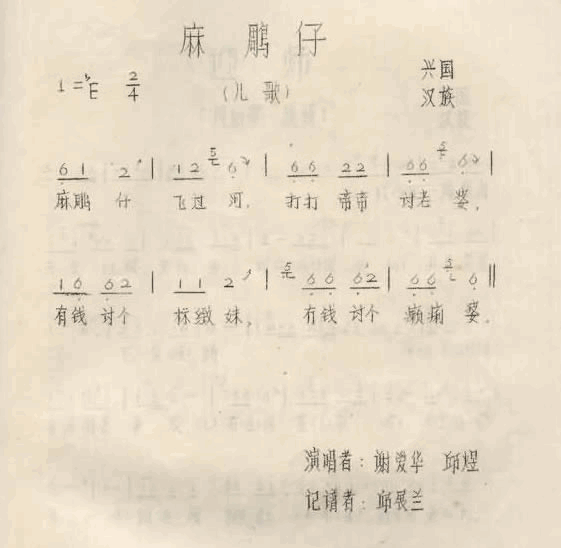 麻鹛仔
1=♭E 2/4 (儿歌) 兴国
汉族
6 1 2 | 1 2 5 6 | 6 6 2 2 | 6 6 5 6 2 |
麻鹛仔 飞过河，打打啼啼 讨老婆，
1 6 6 2 | 1 1 2 | 5 6 6 6 2 | 6 6 5 6 ‖
有钱讨个 标緻妹，有钱讨个 癞痢婆。
演唱者：谢爱华 邱煜
记谱者：邱展兰